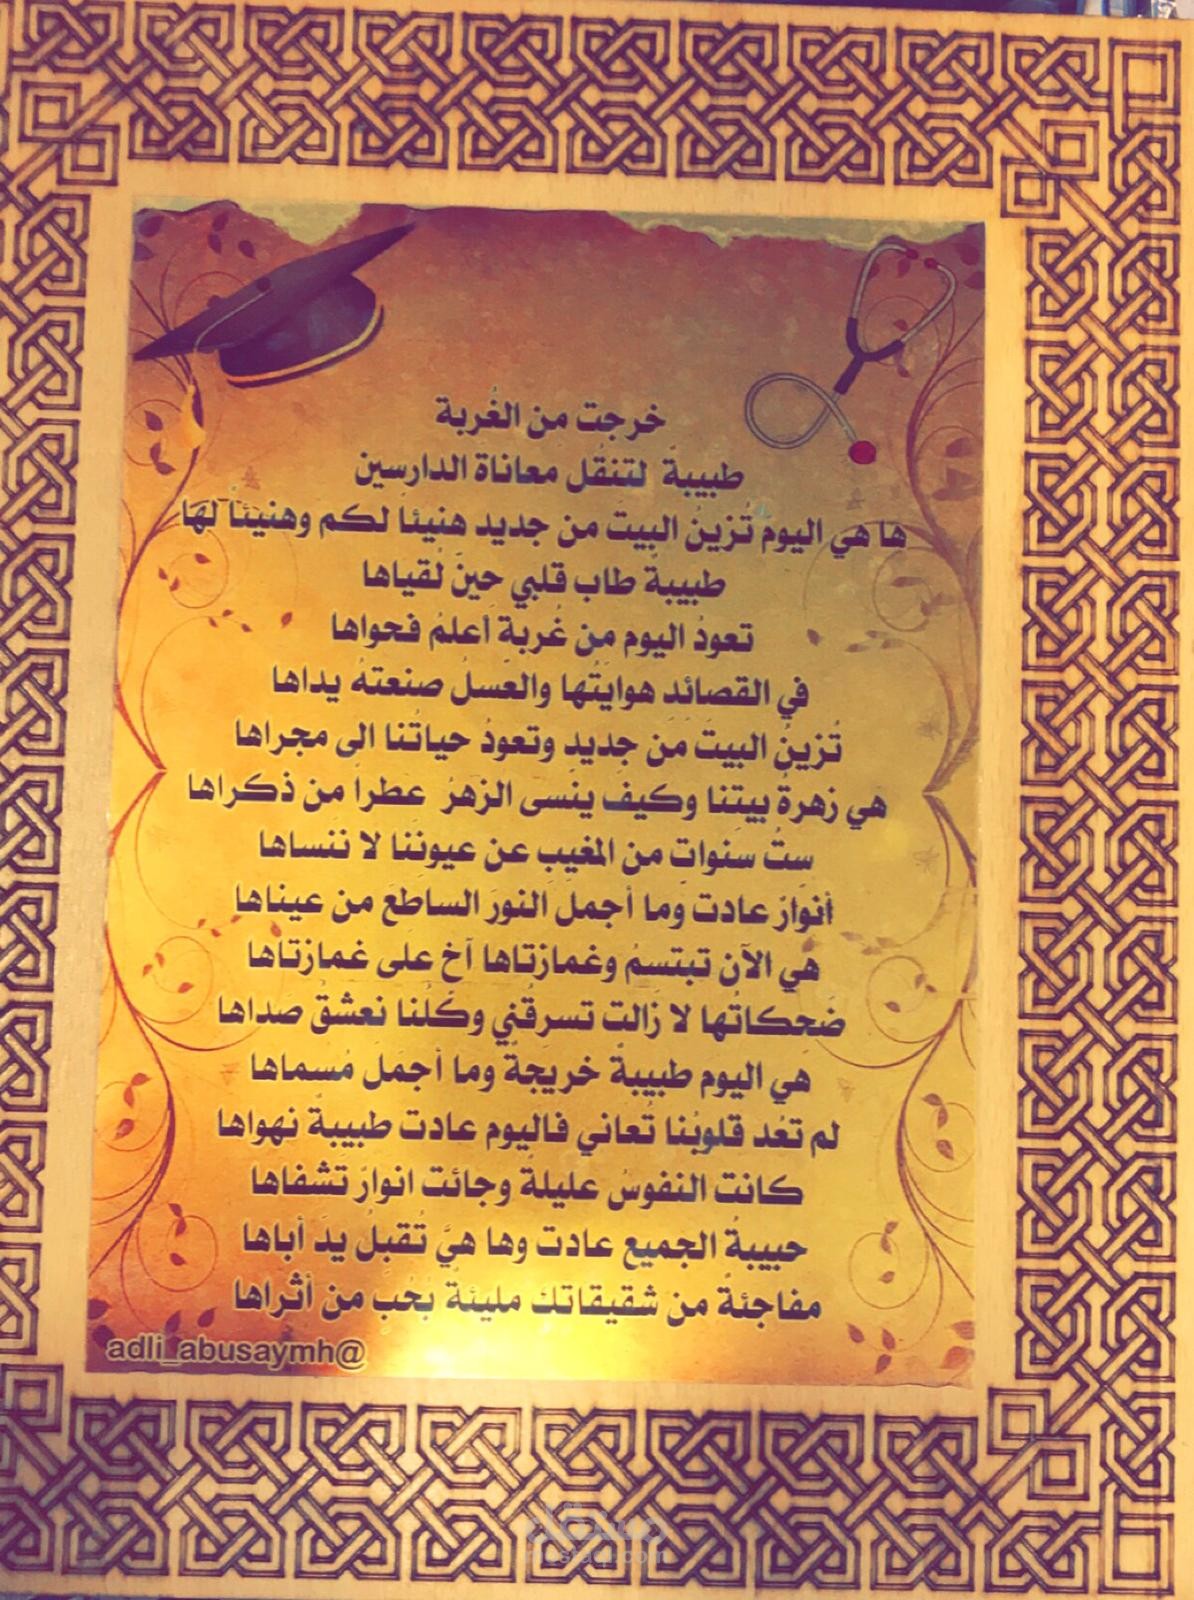 خرجت من الغُربة
طبيبةً لتنقُل معاناة الدارسين
ها هي اليومَ تُزينُ البيتَ من جديد هنيئاً لكم وهنيئاً لهَا
طبيبةٌ طاب قلبي حينَ لُقياها
تعودُ اليوم من غُربةٍ أعلمُ فحواها
في القصائد هوايتُها والعسلُ صنعتهُ يداها
تُزينُ البيتَ من جديدٍ وتعودُ حياتُنا الى مجراها
هي زهرةُ بيتنا وكيفَ ينسى الزهرُ عطراً من ذكراها
ستُ سنواتٍ من المغيبِ عن عيوننا لا ننساها
أنوارُ عادت وما أجملَ النورَ الساطعَ من عيناها
هي الآن تبتسمُ وغمازتاها آخ على غمازتاها
ضحكاتُها لا زالت تسرقُني وكُلنا نعشقُ صداها
هي اليوم طبيبةٌ خريجةٌ وما أجملَ مُسماها
لم تعُد قلوبُنا تُعاني فاليوم عادت طبيبةٌ نهواها
كانت النفوسُ عليلةً وجائت انوارُ تشفاها
حبيبةُ الجميع عادت وها هيَّ تُقبلُ يدَ أباها
مفاجئةٌ من شقيقاتك مليئةٌ بُحُبٍ من أثراها
adli_abusaymh@
مستقل
mostaql.com